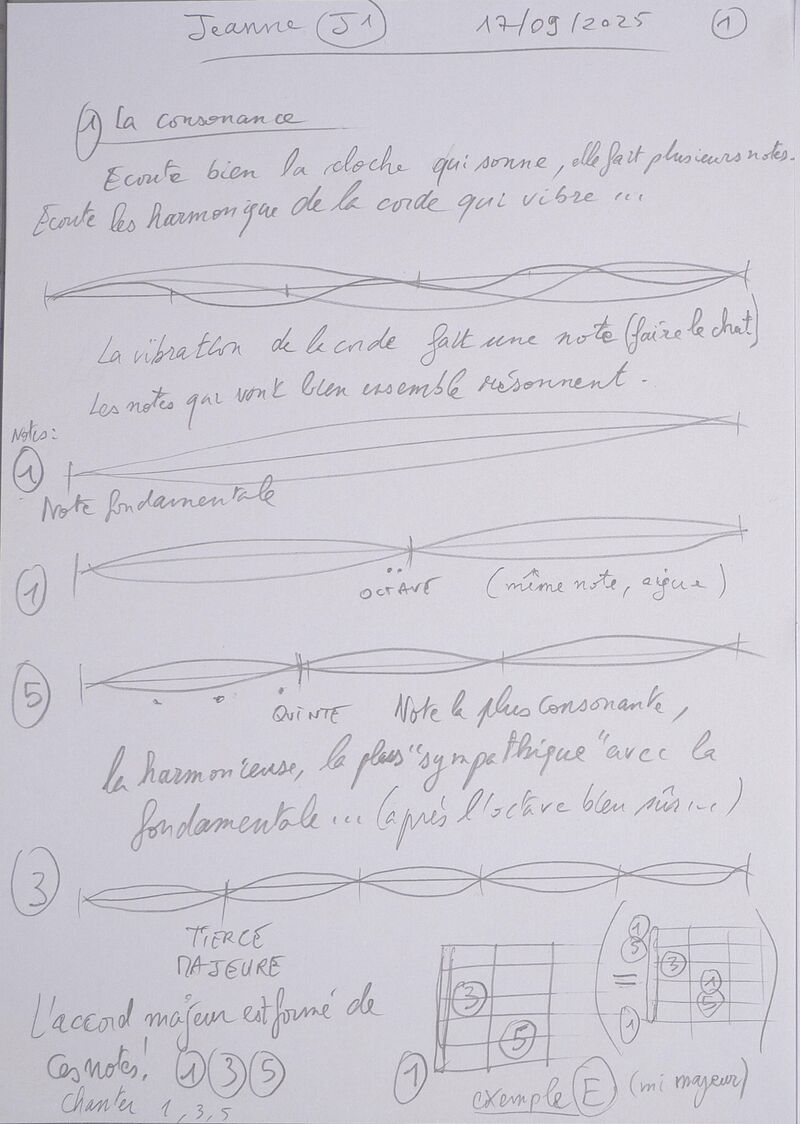 Jeanne J1 17/09/2025 1
1 La consonance
Ecoute bien la cloche qui sonne, elle fait plusieurs notes.
Ecoute les harmonique de la corde qui vibre ...
La vibration de la corde fait une note (faire le chat)
Les notes qui vont bien ensemble résonnent.
Notes:
1
Note fondamentale
1
OCTAVE (même note, aigue)
5
QUINTE Note la plus consonante,
la harmonieuse, la plus "sympathique" avec la
fondamentale ... (après l'octave bien sûr...)
3
TIERCE
MAJEURE
L'accord majeur est formé de
ces notes! 1 3 5
Chanter 1, 3, 5
3
5
1
exemple E (mi majeur)
( =
1
5
3
1
5
1
)